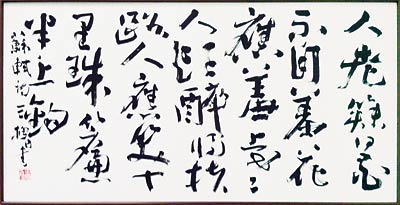 人老簪花
不自羞花
應羞上老
人頭醉歸扶
路人應笑十
里珠簾
半上鉤
蘇軾詩